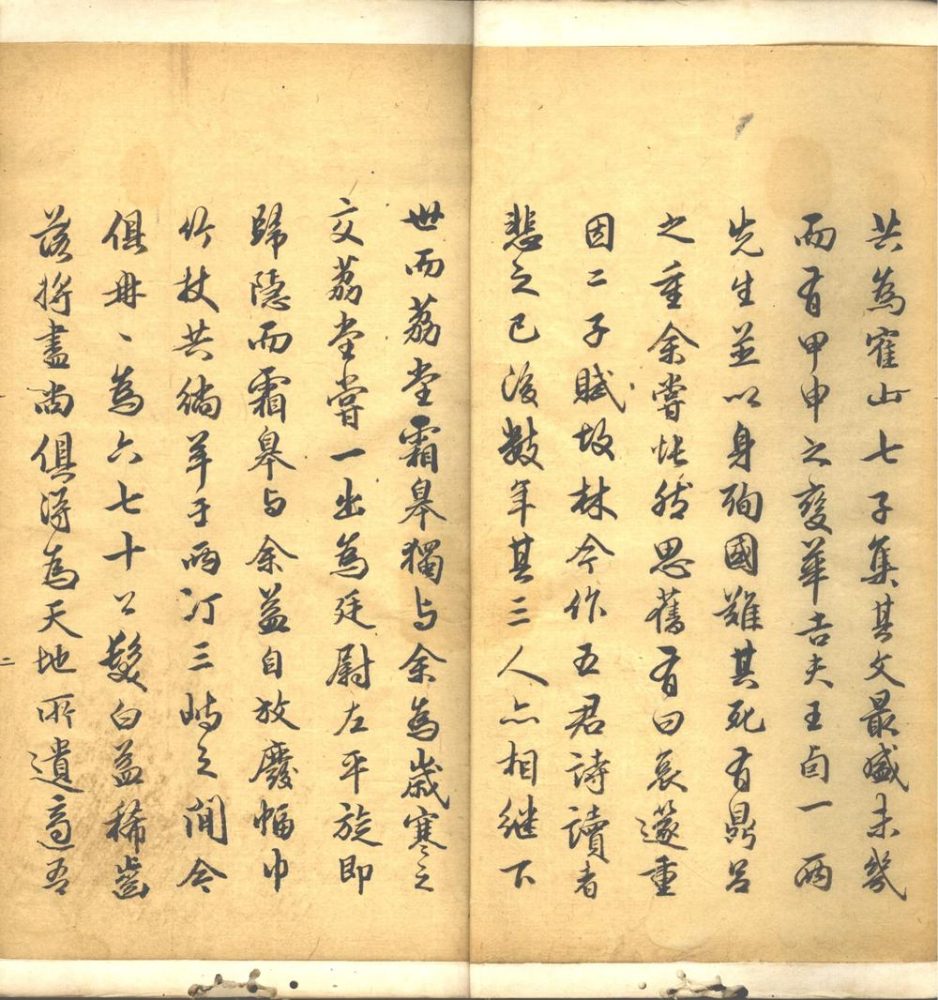 共為寉山七子集其文最盛未幾
而有甲申之變華吉夫王卣一兩
先生並以身殉國難其死有鼎呂
之重余嘗悵然思舊有曰哀篴重
因二子賦故林今作五君詩讀者
悲之已後數年其三人亦相继下
世而荔堂霜皋獨与余為歲寒之
交荔堂嘗一出為廷尉左平旋即
歸隱而霜皋与余益自放廢幅巾
竹杖共徜羊于兩汀三之間今
俱冉丶為六七十公髮白益稀齒
落將盡尚俱得為天地所遺適吾
二